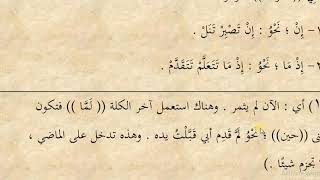 ١- إِنْ ؛ نَحْوُ : إِنْ تَصْبِرْ تَنَلْ .
٢- إِذْ مَا ؛ نَحْوُ : إِذْ مَا تَتَعَلَّمْ تَتَقَدَّمُ .
١) أي : الآن لم يثمر . وهناك استعمل آخر الكلة (( لَمَّا )) فتكون
نى ((حين)) ؛ نَحْوُ لَمَّ قدم أبي قَبَّلْتُ يده . وهذه تدخل على الماضي ،
تجزم شيئًا .)